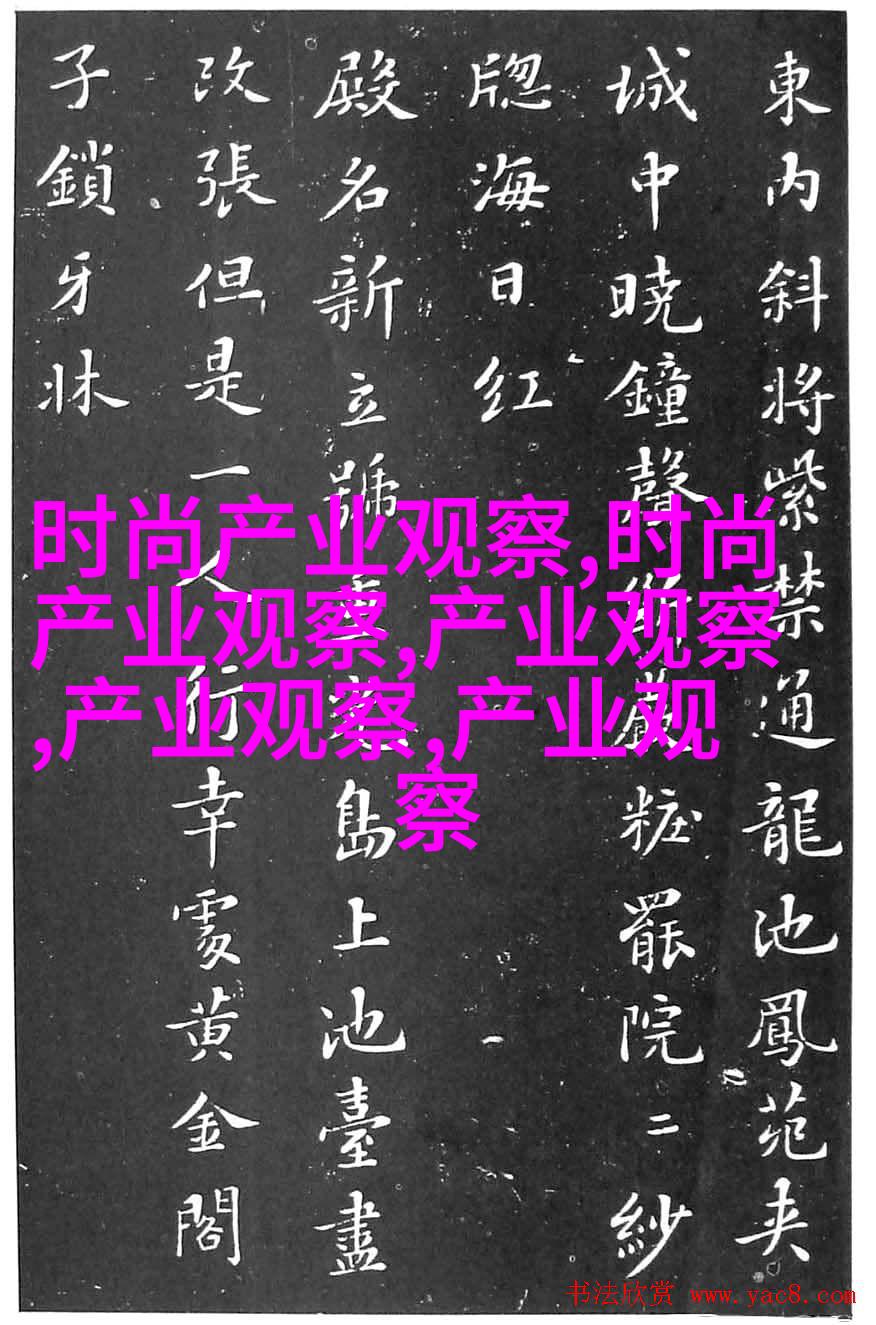 東内斜将紫禁通龍池鳳苑夹
城中暁鐘聲断嚴粧罷院二紗
牕海日红
殿名新立號島上池臺盡
改張但是一人行幸處黄金閣
子鎖牙牀
时尚产业观察,时尚
产业观察,产业观察
,产业观察,产业观
察
书法欣赏 www.yac8.com